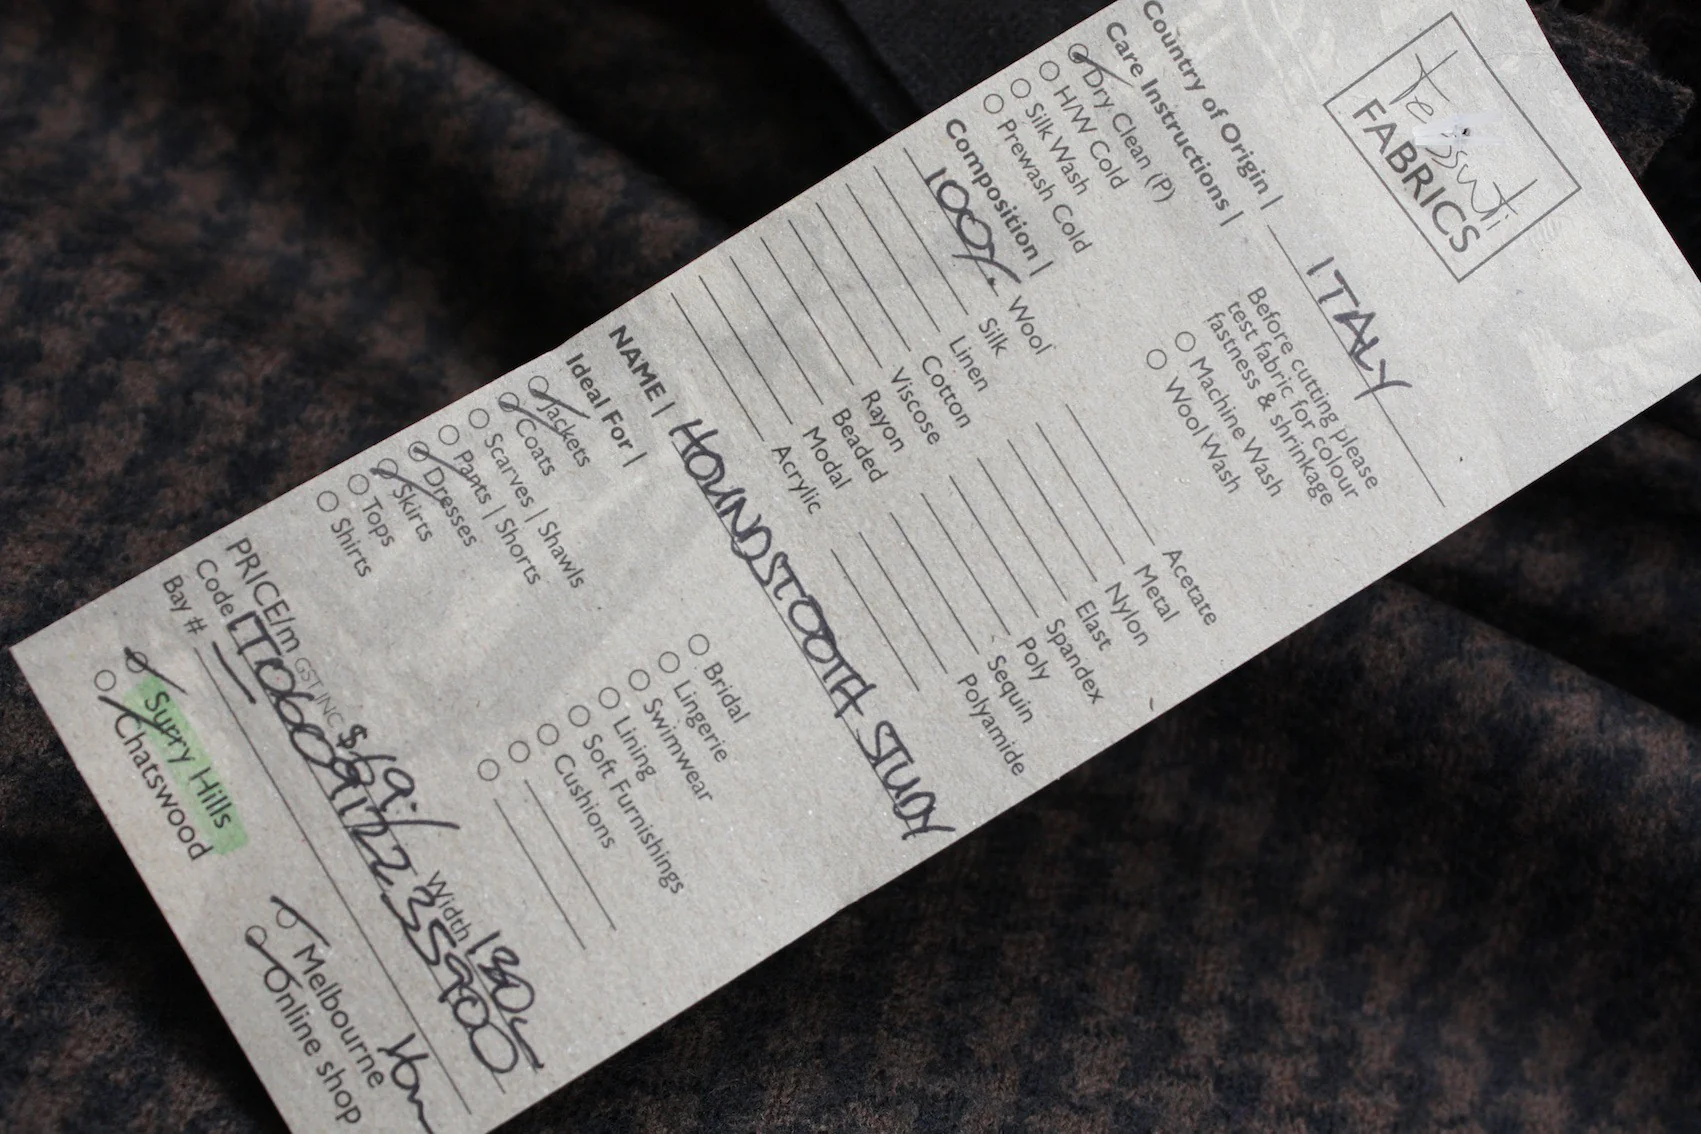 Tessuti
FABRICS
Country of Origin | ITALY
Care Instructions |
Dry Clean (P)
H/W Cold
Silk Wash
Prewash Cold
Before cutting please
test fabric for colour
fastness & shrinkage
Machine Wash
Wool Wash
Composition |
100% Wool
Silk
Linen
Cotton
Viscose
Rayon
Beaded
Modal
Acrylic
Acetate
Metal
Nylon
Elast
Spandex
Poly
Sequin
Polyamide
NAME | HOUNDSTOOTH STUDY
Ideal For |
Jackets
Coats
Scarves | Shawls
Pants | Shorts
Dresses
Skirts
Tops
Shirts
Bridal
Lingerie
Swimwear
Lining
Soft Furnishings
Cushions
PRICE/m GST INC Width
Code
Bay #
Surry Hills
Chatswood
Melbourne
Online shop